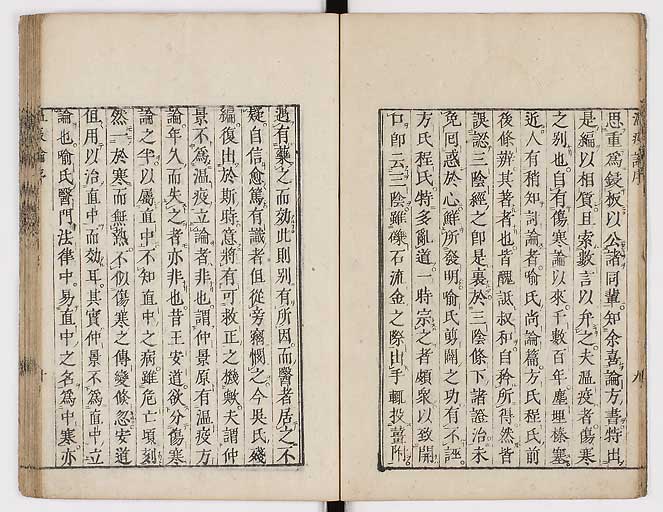 思重爲鋟板以公諸同輩知余喜論方書特出
是編以相質且索數言以弁之夫溫疫者傷寒
之別也自有傷寒論以來千數百年塵埋榛塞
近人有稍知討論者喻氏尚論篇方氏程氏前
後條辨其著者也昔醜詆叔和自矜所得然皆
誤認三陰經之即是裏於三陰條下諸證治未
免回惑於心鮮所發明喻氏剪闢之功有不誣
方氏程氏特多亂道一時宗之者頗衆以致開
口即云三陰雖礫石流金之際出手輒投薑附
過有藥之而効此則别有所因而醫者居之不
疑自信愈篤有識者但從旁竊憫之今吳氏殘
編復出於斯時意將有可救正之機歟夫謂仲
景不爲溫疫立論者非也謂仲景原有溫疫方
論年久而失之者亦非也昔王安道欲分傷寒
論之半以屬直中不知直中之病雖危亡頃刻
然一於寒而無熱不似傷寒之傳變倏忽安道
但用以治直中而効耳其實仲景不爲直中立
論也喻氏醫門法律中易直中之名爲中寒亦